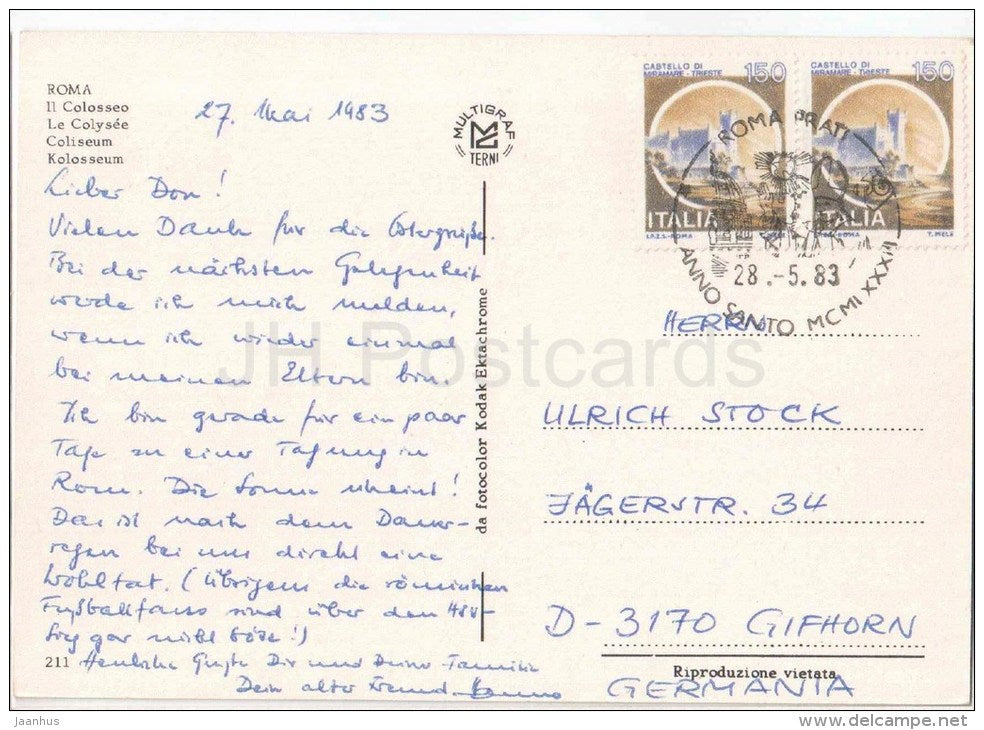 ROMA
Il Colosseo
Le Colysée
Coliseum
Kolosseum
27. Mai 1983
MULTIGRAF
TERNI
CASTELLO DI
MIRAMARE - TRIESTE
150
ITALIA
I.P.Z.S.-ROMA
CASTELLO DI
MIRAMARE - TRIESTE
150
ITALIA
ROMA
T. MELE
ROMA PRATI
28.-5.83
ANNO SANTO MCMLXXXIII
Lieber Don!
Vielen Dank für die Ostergrüße.
Bei der nächsten Gelegenheit
werde ich mich melden,
wenn ich wieder einmal
bei meinen Eltern bin.
Ich bin gerade für ein paar
Tage zu einer Tagung in
Rom. Die Sonne scheint!
Das ist nach dem Dauer-
regen bei uns direkt eine
Wohltat. (Übrigens die römischen
Fußballfans sind über den HSV-
Sieg gar nicht böse!)
Herzliche Grüße Dir und Deiner Familie
Dein alter Freund
da fotocolor Kodak Ektachrome
HERRN
ULRICH STOCK
JÄGERSTR. 34
D-3170 GIFHORN
GERMANIA
211
Riproduzione vietata
JH Postcards
Jaanhus
www.delcampe.net